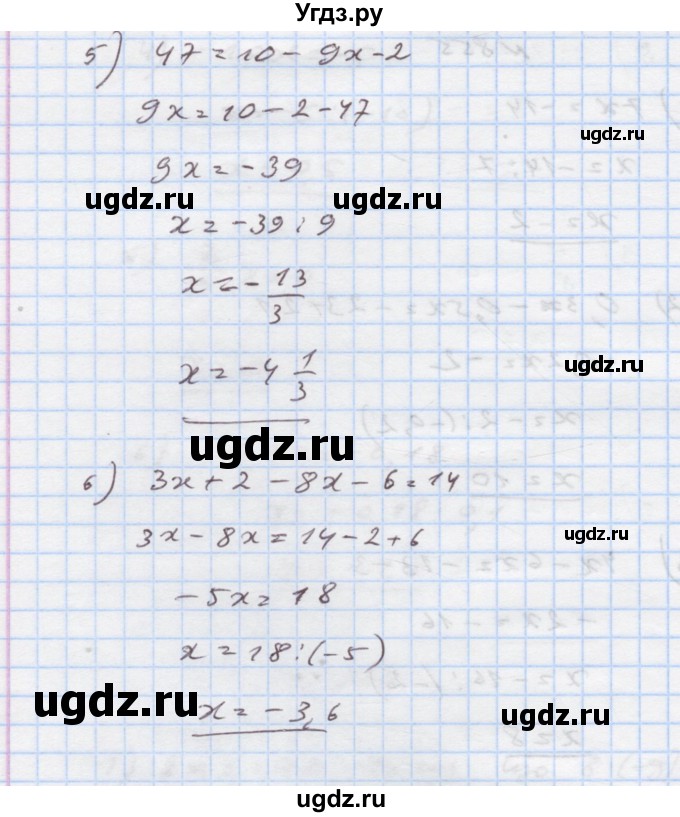 Угдз.ру
5) 47 = 10 - 9x - 2
9x = 10 - 2 - 47
ugdz.ru
9x = -39
ugdz.ru
ugdz.ru
x = -39 : 9
x = - 13/3
ugdz.ru
x = -4 1/3
ugdz.ru
ugdz.ru
6) 3x + 2 - 8x - 6 = 14
3x - 8x = 14 - 2 + 6
ugdz.ru
-5x = 18
x = 18 : (-5)
ugdz.ru
x = -3,6
ugdz.ru
ugdz.ru